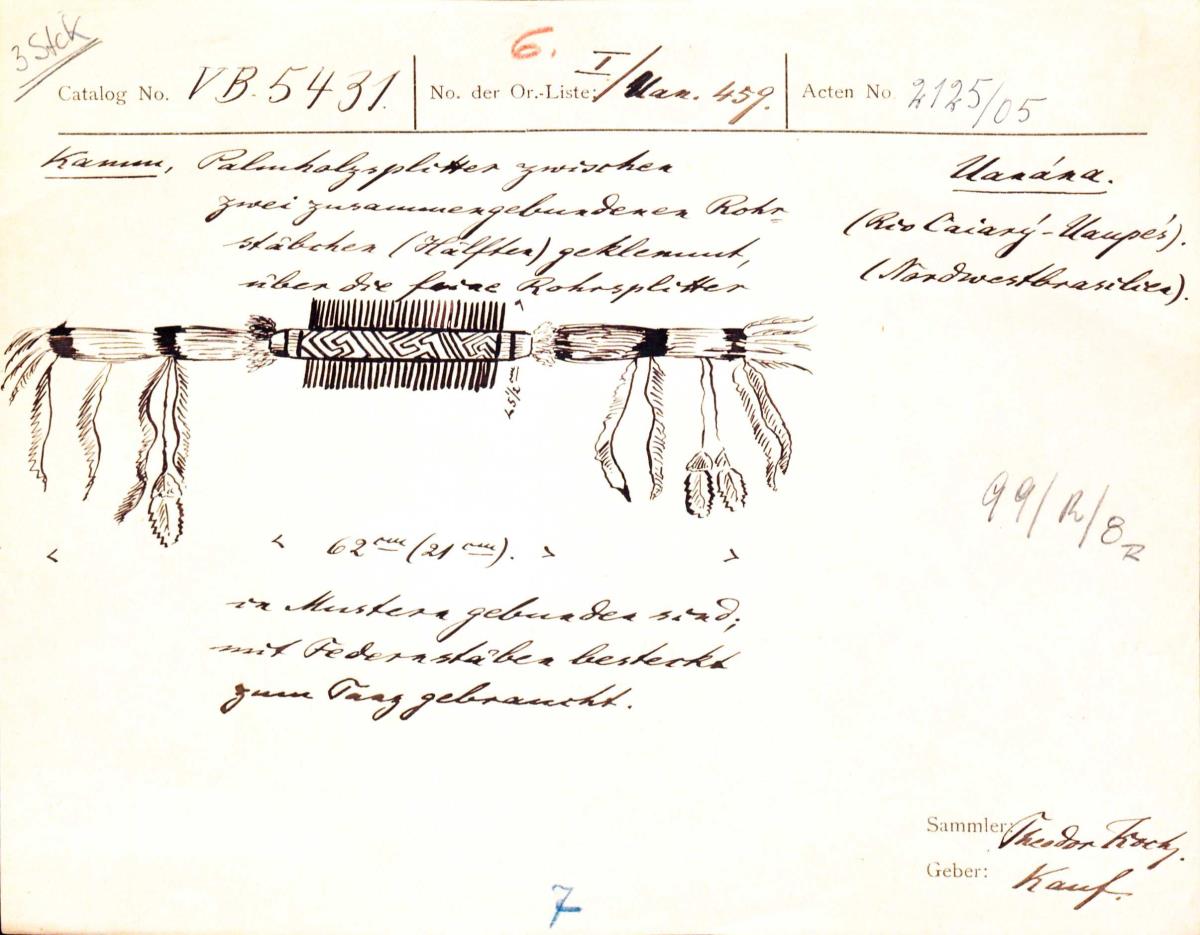 3 Stck
6.
Catalog No. VB. 5431.
No. der Or.-Liste: I/Uan. 459.
Acten No 2125/05
Kamm, Palmholzsplitter zwischen
zwei zusammengebundenen Rohr-
stäbchen (Hälften) geklemmt,
über die feine Rohrsplitter
Uanána.
(Rio Caiarý-Uaupés).
(Nordwestbrasilien).
< 62 cm (21 cm). >
99/R/8
in Mustern gebunden sind;
mit Federnstäben besteckt
zum Tanz gebraucht.
Sammler: Theodor Koch.
Geber: Kauf.
7